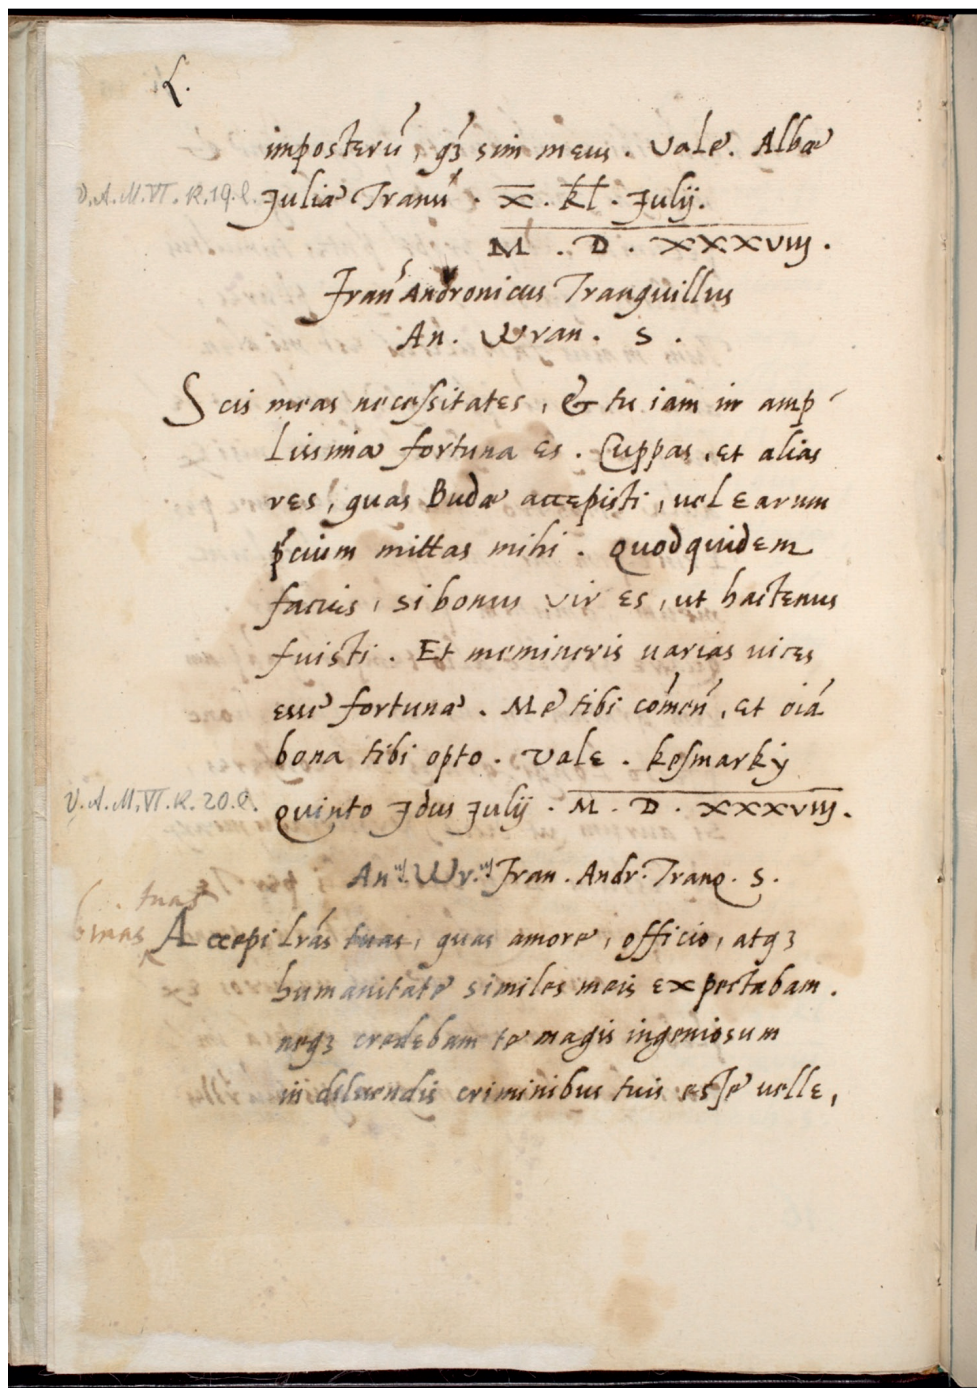 L.
imposterū, qʒ sim meus. Vale. Albæ
V.A.M.VI.K.19.l. Juliæ Tranũ. X. kl. Julij.
M. D. XXXVIIJ.
Fran Andronicus Tranquillus
An. Wran. S.
Scis meas necessitates, & tu iam in amp-
lissima fortuna es. Cuppas, et alias
res, quas Budæ accepisti, vel earum
p̄cium mittas mihi. Quodquidem
facies, si bonus vir es, ut hactenus
fuisti. Et memineris varias vices
esse fortunæ. Me tibi com̄en̄, et oīa
bona tibi opto. Vale. Kesmarky
V.A.M.VI.K.20.l. Quinto Jdus Julij. M. D. XXXVIIJ.
An. Wr. Fran. Andr. Tranq. S.
tuas
binas Accepi l̄ras tuas, quas amore, officio, atqʒ
humanitate similes meis expectabam.
neqʒ credebam te magis ingeniosum
in diluendis criminibus tuis esse velle,